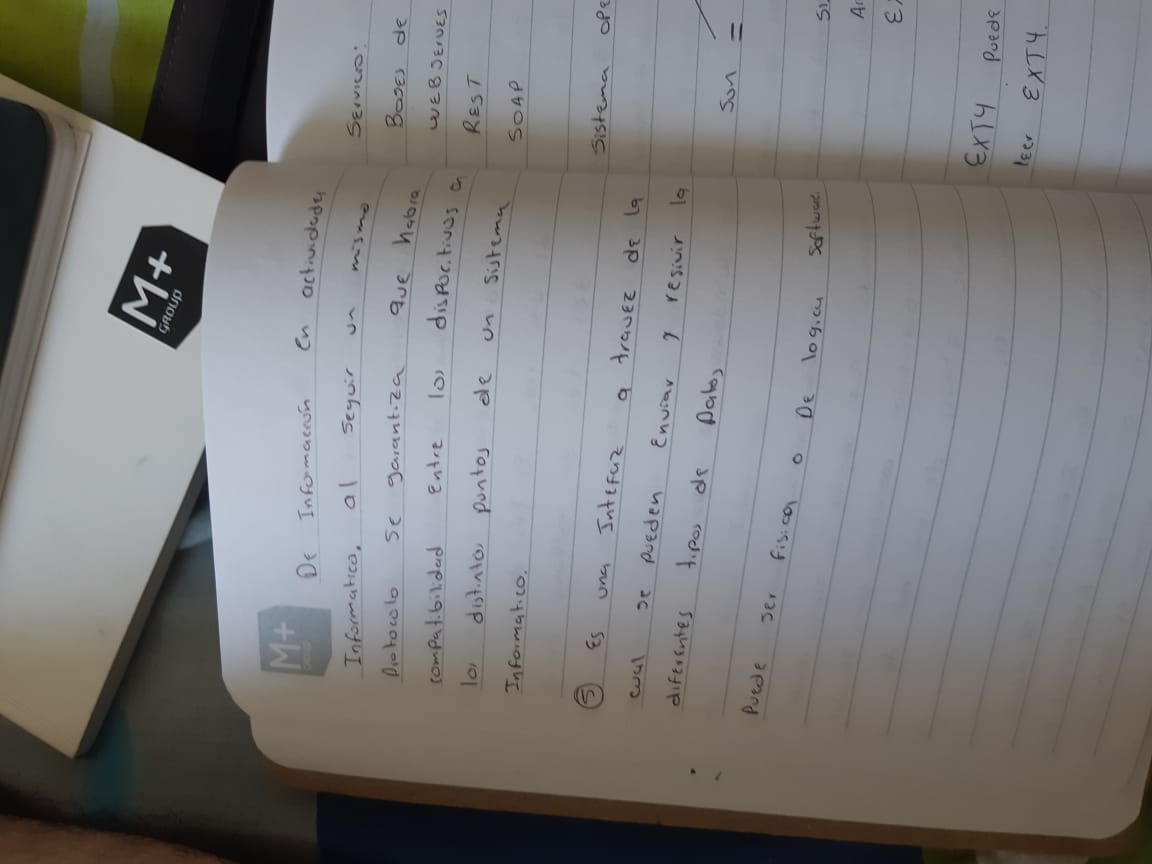 M+
GROUP
M+
De Información en actividades
Informatica, al seguir un mismo
Protocolo se garantiza que habra
compatibilidad entre los dispocitivos en
los distintos puntos de un sistema
Informatico.
5 Es una Interfaz a travez de la
cual se pueden Enviar y resivir la
diferentes tipos de Datos
Puede ser fisica o De logica software
Servicio:
Bases de
WEBSERVES
REST
SOAP
Sistema ope
Son =
EXT4 puede
leer EXT4.